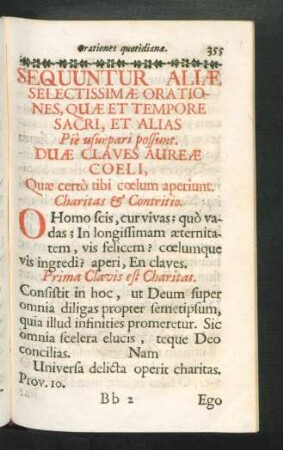 Orationes quotidianæ. 355
SEQUUNTUR ALIÆ
SELECTISSIMÆ ORATIO-
NES, QUÆ ET TEMPORE
SACRI, ET ALIAS
Piè usurpari possunt.
DUÆ CLAVES AUREÆ
COELI,
Quæ certò tibi cœlum aperiunt.
Charitas & Contritio.
O Homo scis, cur vivas? quò va-
das? In longissimam æternita-
tem, vis felicem? cœlumque
vis ingredi? aperi, En claves.
Prima Clavis est Charitas.
Consistit in hoc, ut Deum super
omnia diligas propter semetipsum,
quia illud infinities promeretur. Sic
omnia scelera elucis, teque Deo
concilias. Nam
Universa delicta operit charitas.
Prov. 10.
Bb 2 Ego